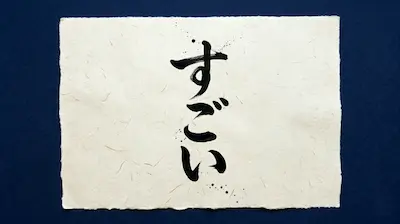 すごい